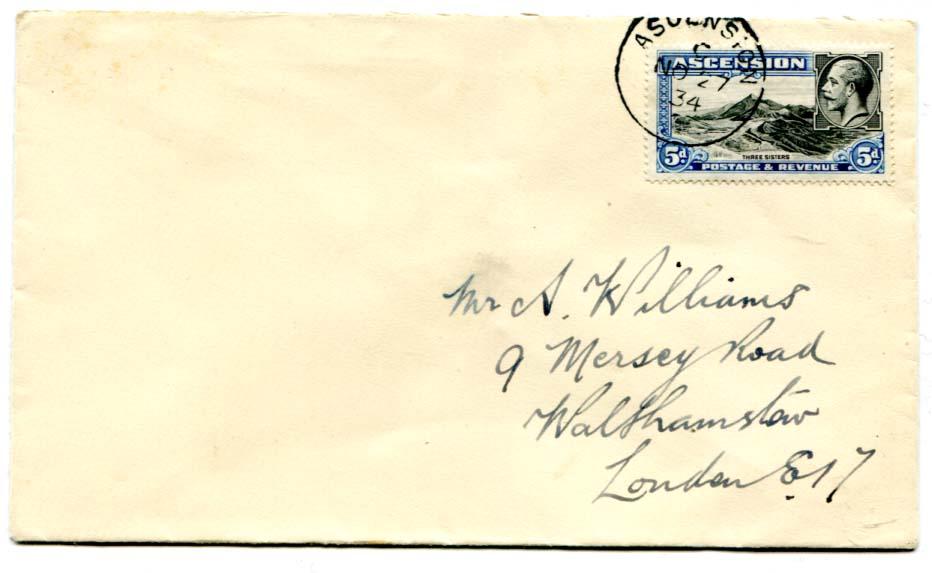 ASCENSION
C
NO 27
34
ASCENSION
THREE SISTERS
5d 5d
POSTAGE & REVENUE
Mr A. Williams
9 Mersey Road
Walthamstow
London E.17